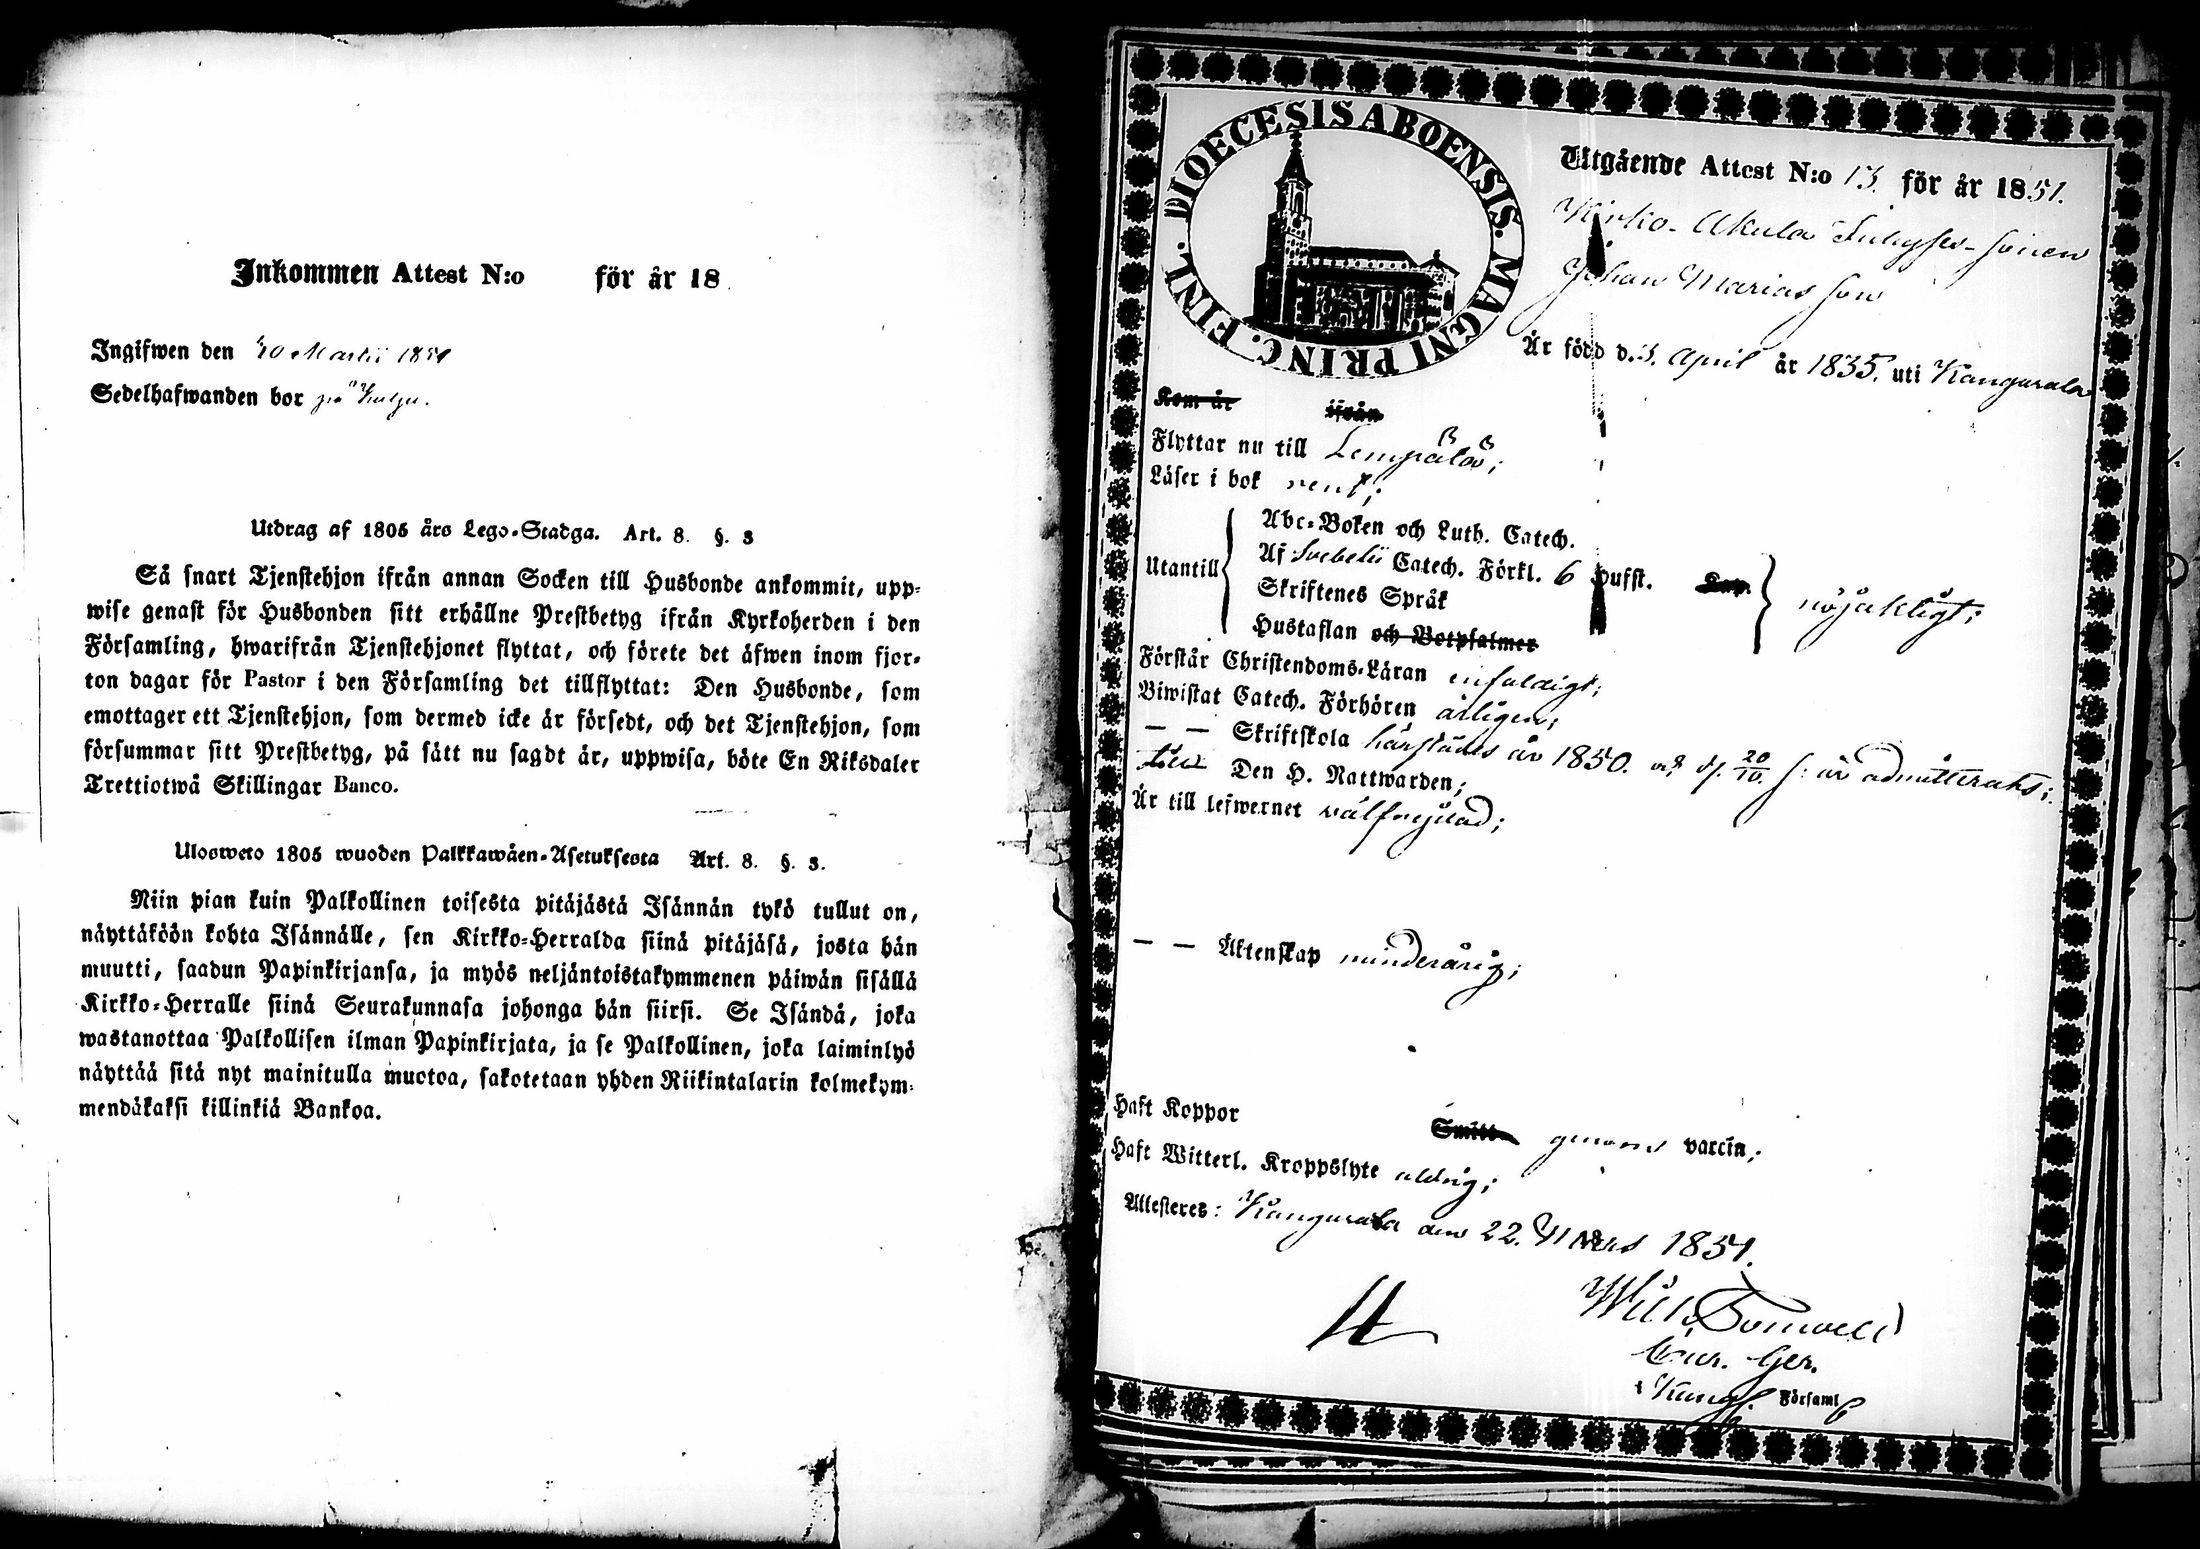 Inkommen Attest N:o för år 18
Ingifwen den 30 Martii 1851
Sedelhafwanden bor på
Utdrag af 1805 års Lego-Stadga. Art. 8. §. 3
Så snart Tjenstehjon ifrån annan Socken till Husbonde ankommit, upp-
wise genast för Husbonden sitt erhållne Prestbetyg ifrån Kyrkoherden i den
Församling, hwarifrån Tjenstehjonet flyttat, och förete det äfwen inom fjor-
ton dagar för Pastor i den Församling det tillflyttat: Den Husbonde, som
emottager ett Tjenstehjon, som dermed icke är försedt, och det Tjenstehjon, som
försummar sitt Prestbetyg, på sätt nu sagdt är, uppwisa, böte En Riksdaler
Trettiotwå Skillingar Banco.
Ulosweto 1805 wuoden Palkkawäen-Asetuksesta Art. 8. §. 3.
Niin pian kuin Palkollinen toisesta pitäjästä Isännän tykö tullut on,
näyttäköön kohta Isännälle, sen Kirkko-Herralda siinä pitäjäsä, josta hän
muutti, saadun Papinkirjansa, ja myös neljäntoistakymmenen päiwän sisällä
Kirkko-Herralle siinä Seurakunnasa johonga hän siirsi. Se Isändä, joka
wastanottaa Palkollisen ilman Papinkirjata, ja se Palkollinen, joka laiminlyö
näyttää sitä nyt mainitulla muotoa, sakotetaan yhden Riikintalarin kolmekym-
mendäkaksi killinkiä Bankoa.
DIOECESIS ABOENSIS. MAGNI PRINC. FINL.
Utgående Attest N:o 13. för år 1851.
Kirko-Akula Inhyses-sonen
Johan Mariasson
Är född d. 3. April år 1835. uti Kangasala
Kom år ifrån
Flyttar nu till Lempälä;
Läser i bok rent;
Utantill
Abc-Boken och Luth. Catech.
Af Svebelii Catech. Förkl. 6 Hufst.
Skriftenes Språk
Hustaflan och Botpsalmer
nöjaktigt;
Förstår Christendoms-Läran enfaldigt;
Biwistat Catech. Förhören årligen;
— — Skriftskola härstädes år 1850. och d. 20/10. s: år admitterats;
till Den H. Nattwarden;
Är till lefwernet välfrejdad;
— — Äktenskap minderårig;
Haft Koppor genom vaccin;
Haft Witterl. Kroppslyte aldrig;
Attesteres: Kangasala den 22. Mars 1851.
Cur. Ger.
i Kangs. Församl